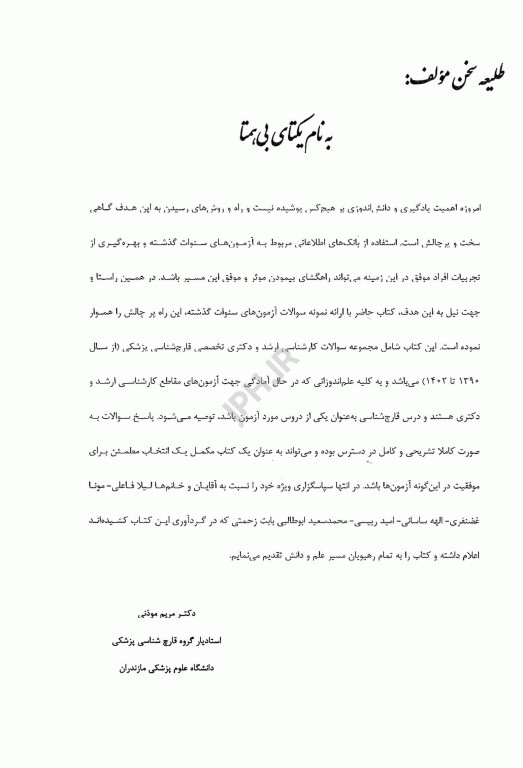 طلیعه سخن مؤلف:
به نام یکتای بی‌همتا
امروزه اهمیت یادگیری و دانش‌اندوزی بر هیچ‌کس پوشیده نیست و راه و روش‌های رسیدن به این هدف گـاهی
سخت و پرچالش است. استفاده از بانک‌های اطلاعاتی مربوط بـه آزمـون‌هـای سـنوات گذشـته و بهـره‌گیـری از
تجربیات افراد موفق در این زمینه می‌تواند راهگشای بیمودن موثر و موفق این مسـیر باشـد. در همـین راسـتا و
جهت نیل به این هدف، کتاب حاضر با ارائه نمونه سوالات آزمون‌های سنوات گذشته، این راه پر چالش را همـوار
نموده است. این کتاب شامل مجموعه سوالات کارشناسی ارشد و دکتری تخصصی قارچ‌شناسی پزشکی (از سـال
۱۳۹۰ تا ۱۴۰۲) می‌باشد و به کلیه علم‌اندوزانی که در حال آمادگی جهت آزمون‌های مقاطع کارشناسـی ارشـد و
دکتری هستند و درس قارچ‌شناسی به‌عنوان یکی از دروس مورد آزمون باشد، توصیه مـی‌شـود. پاسـخ سـوالات بـه
صورت کاملا تشریحی و کامل در دسترس بوده و می‌تواند به عنوان یک کتاب مکمـل یـک انتخـاب مطمـئن بـرای
موفقیت در این‌گونه آزمون‌ها باشد. در انتها سپاسگزاری ویژه خود را نسبت به آقایان و خانم‌هـا لـیلا فـاعلی- مونـا
غضنفری- الهه ساسانی- امید رییسی- محمدسعید ابوطالبی بابت زحمتی که در گـردآوری ایـن کتـاب کشـیده‌انـد
اعلام داشته و کتاب را به تمام رهپویان مسیر علم و دانش تقدیم می‌نمایم.
دکتـر مریم موذنی
استادیار گروه قارچ شناسی پزشکی
دانشگاه علوم پزشکی مازندران
JPH.IR